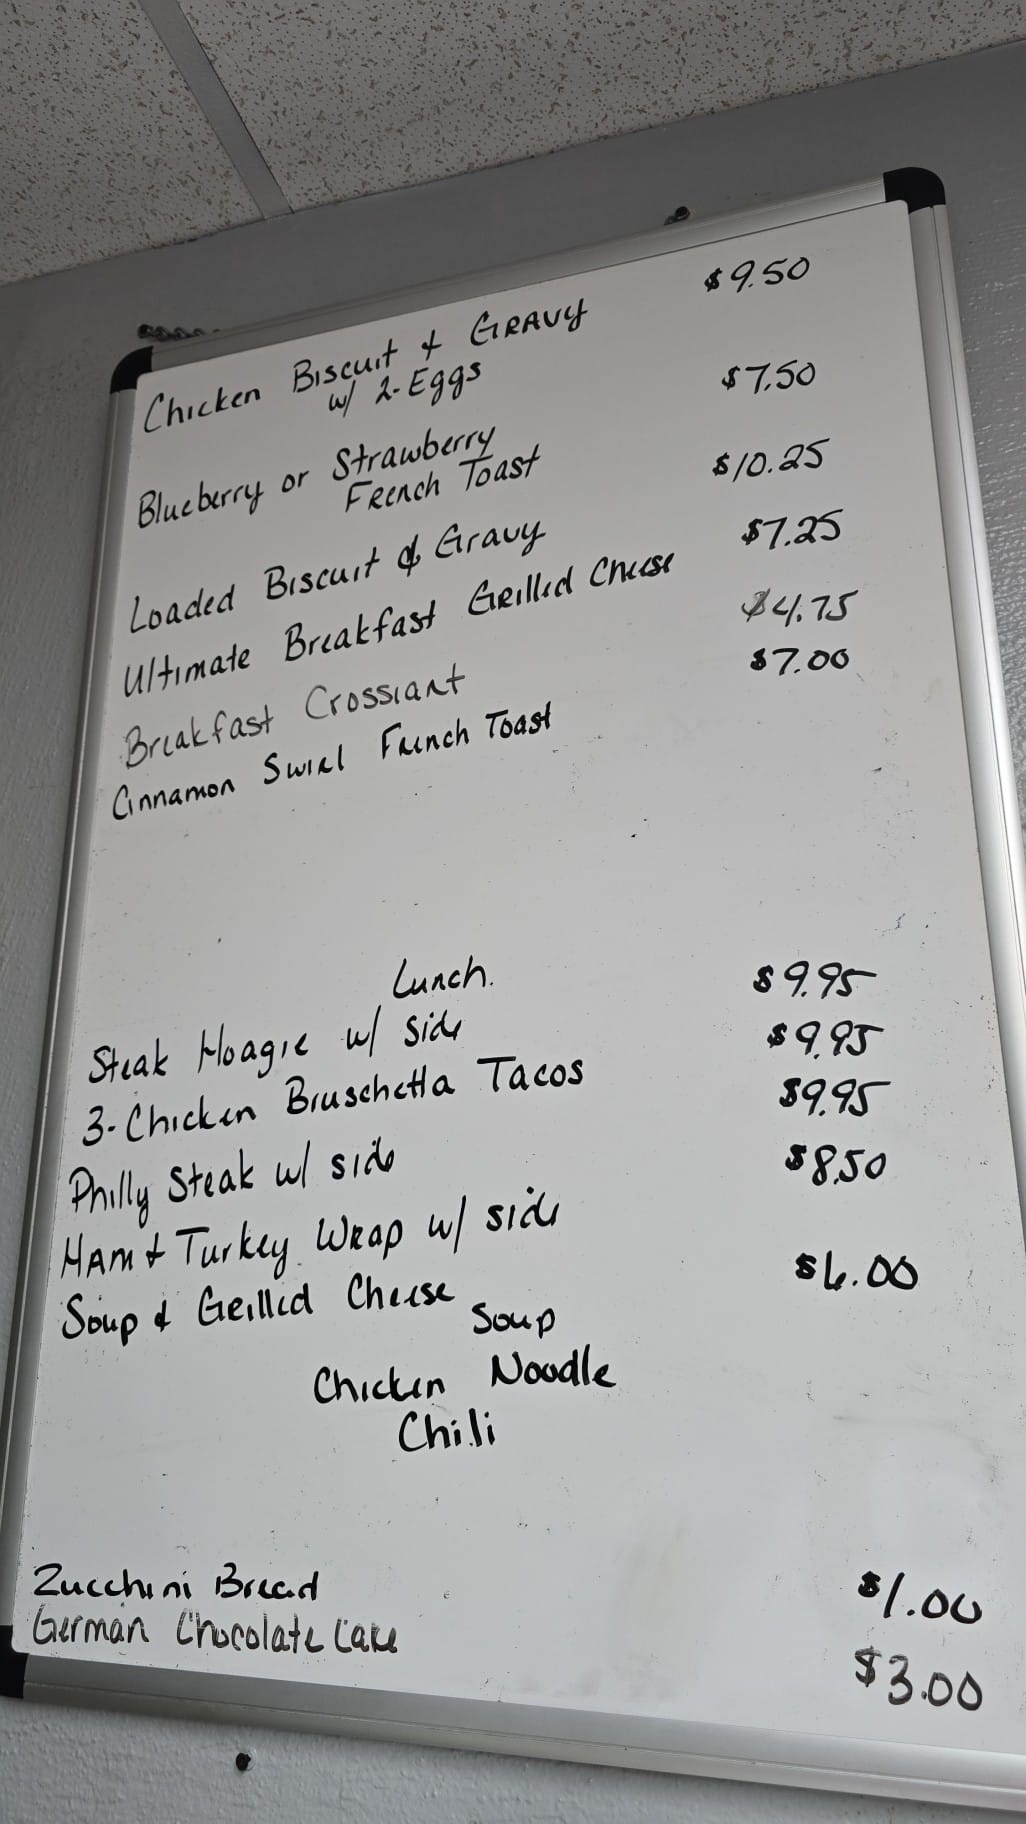 Chicken Biscuit & GRAVY $9.50
w/ 2-Eggs
Blueberry or Strawberry $7.50
French Toast
Loaded Biscuit & Gravy $10.25
Ultimate Breakfast Grilled Cheese $7.25
Breakfast Crossiant $4.75
Cinnamon Swirl French Toast $7.00
Lunch.
Steak Hoagie w/ side $9.95
3-Chicken Bruschetta Tacos $9.95
Philly Steak w/ side $9.95
HAM & Turkey Wrap w/ side $8.50
Soup & Grilled Cheese $6.00
Soup
Chicken Noodle
Chili
Zucchini Bread $1.00
German Chocolate Cake $3.00